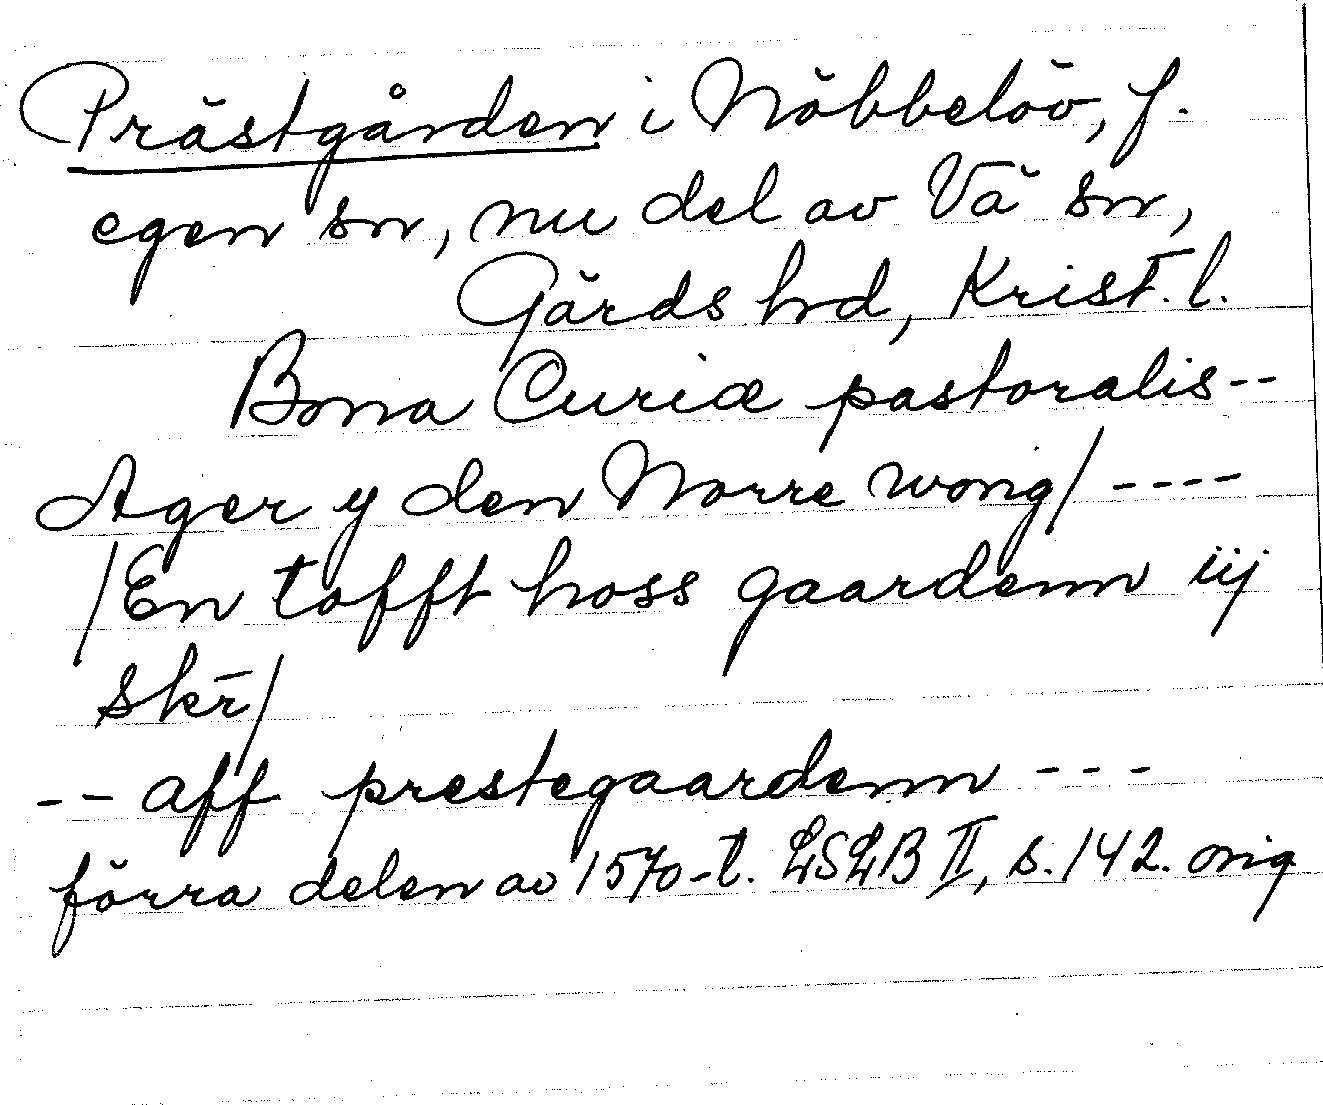 Prästgården i Nöbbelöv, f.
egen sn, nu del av Vä sn,
Gärds hd, Krist. l.
Bona Curiæ pastoralis--
Ager y den Norre wong/ ----
/En tofft hoss gaardenn iij
skr̄/
-- aff prestegaardenn ---
förra delen av 1570-t. LSLB II, s. 142. orig